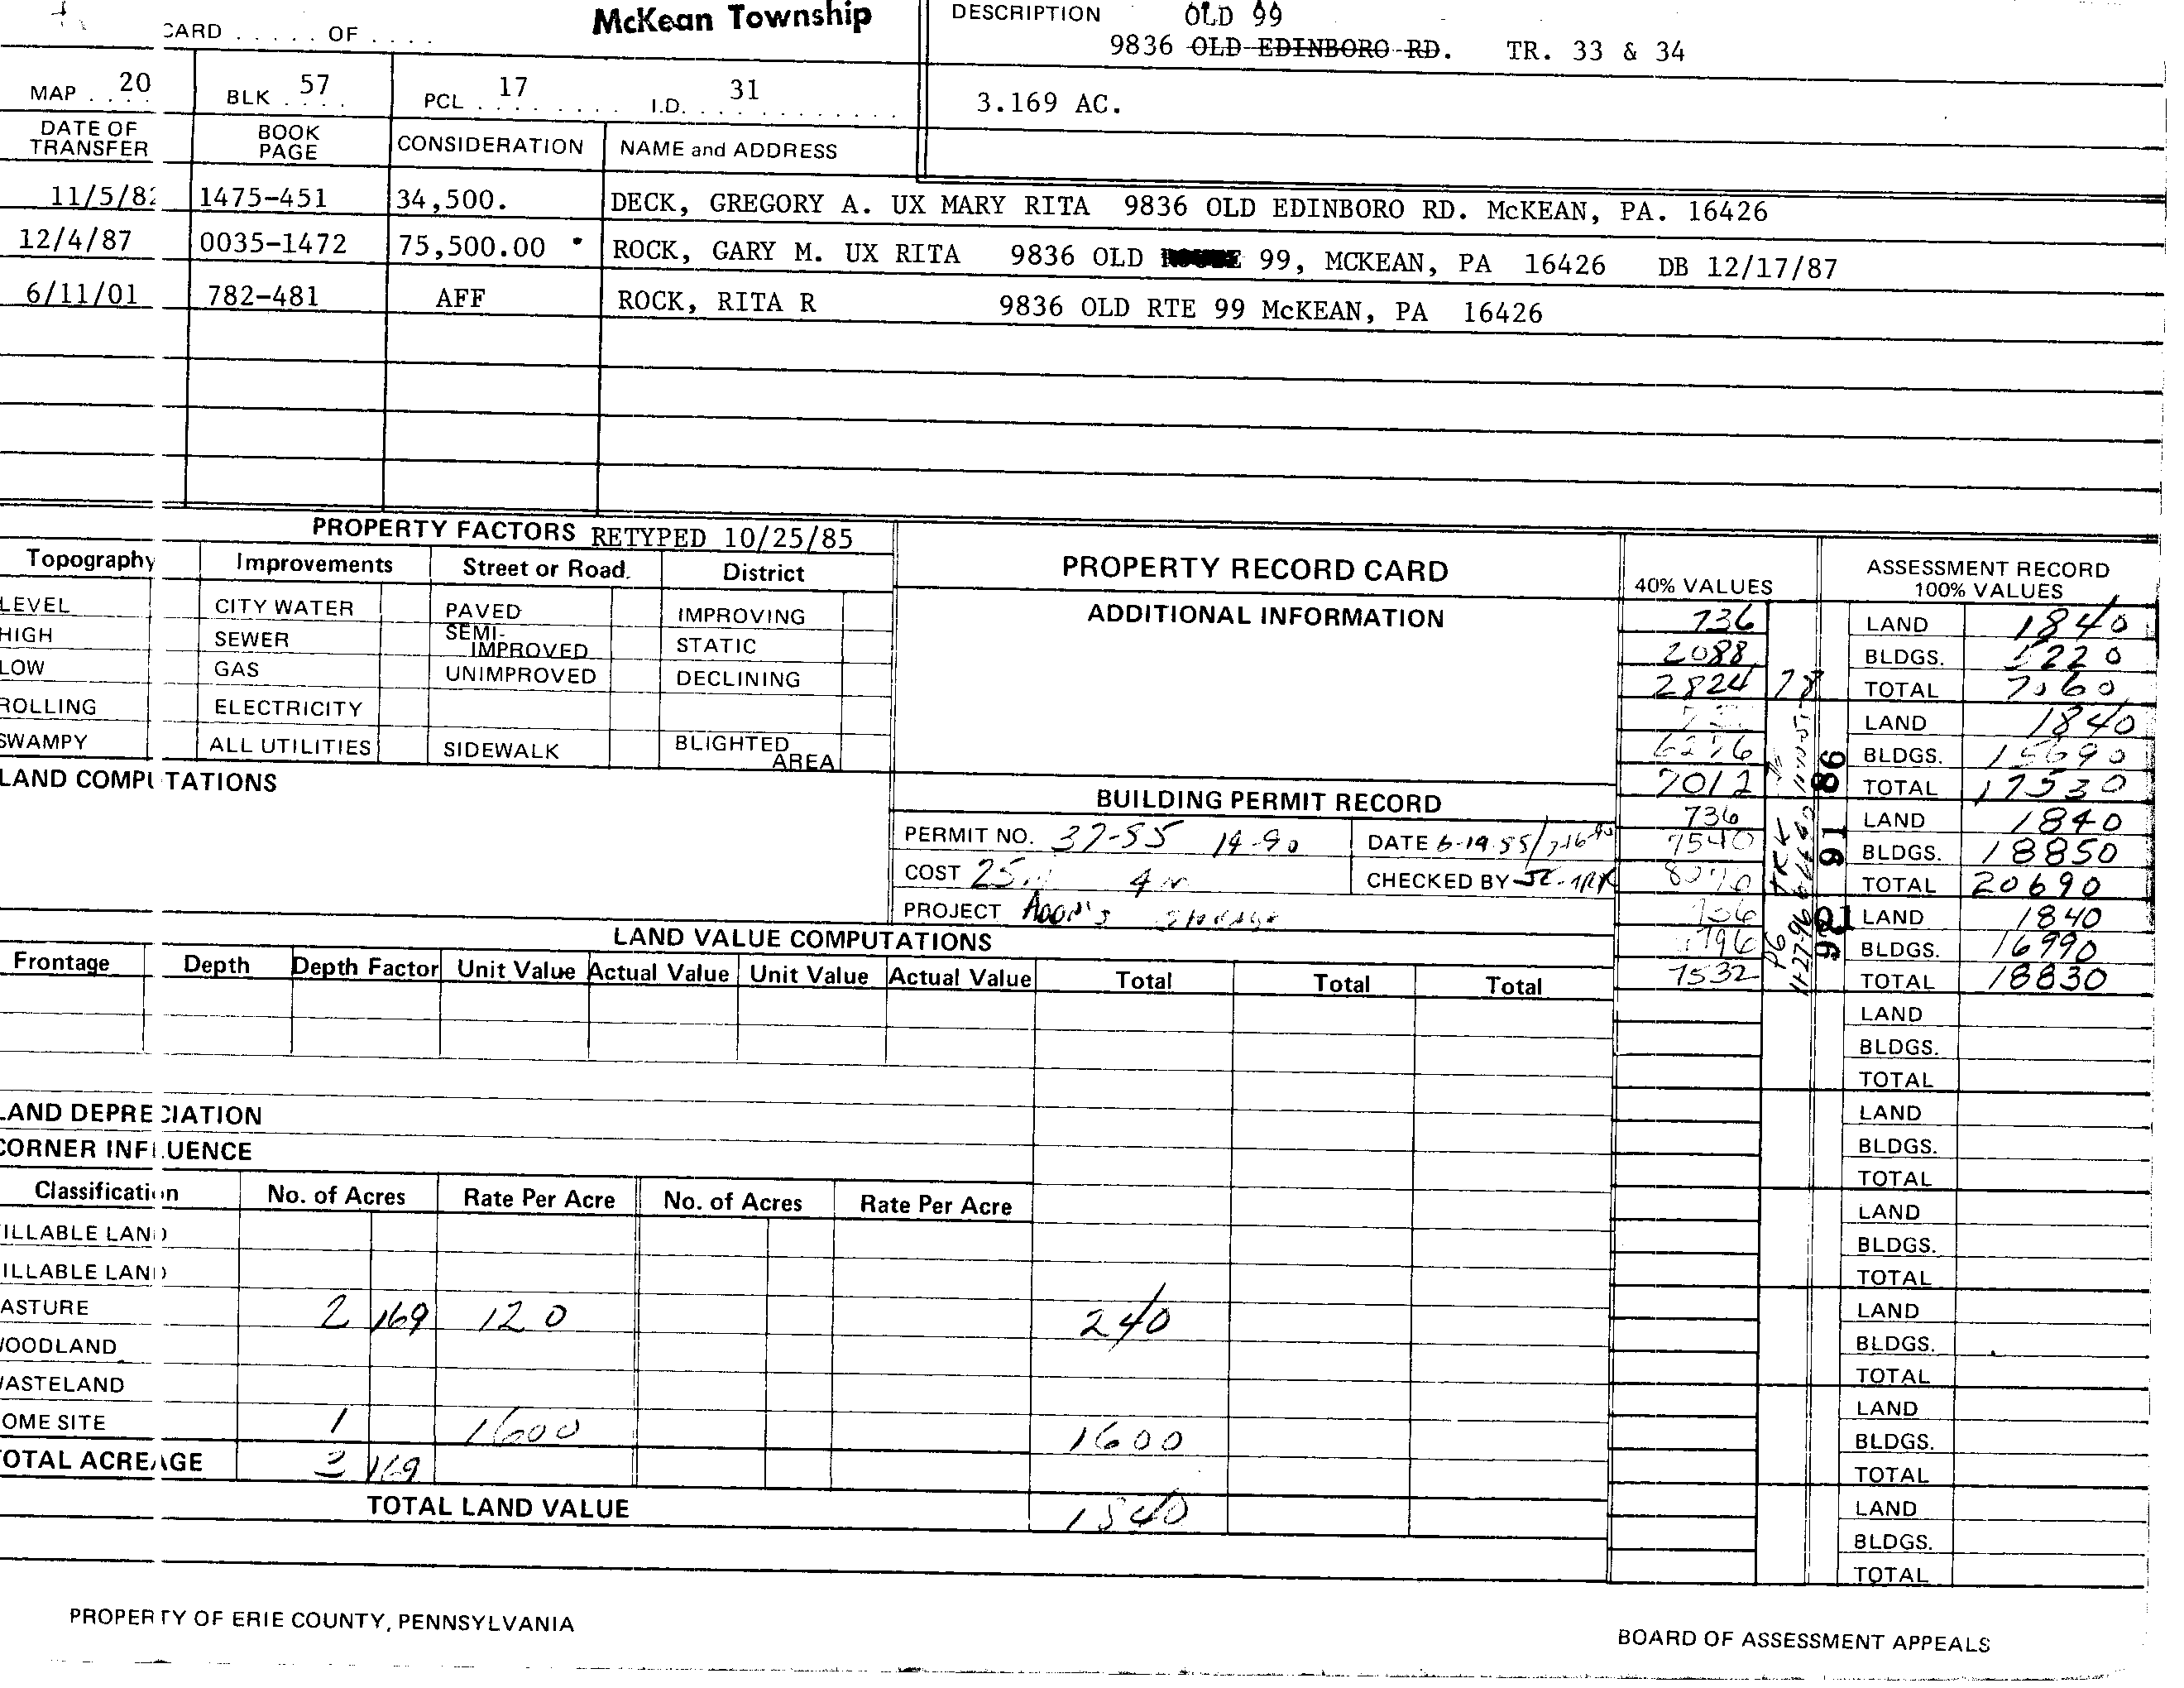 CARD . . . . . OF . . . .
McKean Township
DESCRIPTION OLD 99
9836 OLD EDINBORO RD. TR. 33 & 34
MAP . . 20 BLK . . 57 PCL . . 17 I.D. . . 31
3.169 AC.
DATE OF TRANSFER BOOK PAGE CONSIDERATION NAME and ADDRESS
11/5/82 1475-451 34,500. DECK, GREGORY A. UX MARY RITA 9836 OLD EDINBORO RD. McKEAN, PA. 16426
12/4/87 0035-1472 75,500.00 ROCK, GARY M. UX RITA 9836 OLD 99, MCKEAN, PA 16426 DB 12/17/87
6/11/01 782-481 AFF ROCK, RITA R 9836 OLD RTE 99 McKEAN, PA 16426
PROPERTY FACTORS RETYPED 10/25/85
Topography Improvements Street or Road. District
LEVEL CITY WATER PAVED IMPROVING
HIGH SEWER SEMI-IMPROVED STATIC
LOW GAS UNIMPROVED DECLINING
ROLLING ELECTRICITY
SWAMPY ALL UTILITIES SIDEWALK BLIGHTED AREA
LAND COMPUTATIONS
PROPERTY RECORD CARD
ADDITIONAL INFORMATION
BUILDING PERMIT RECORD
PERMIT NO. 37-85 14-90 DATE 6-19-85/
COST 25 4 CHECKED BY
PROJECT Storage
40% VALUES ASSESSMENT RECORD
100% VALUES
736 LAND 1840
2088 BLDGS. 5220
2824 78 TOTAL 7060
LAND 1840
6276 BLDGS. 15690
7012 86 TOTAL 17530
736 LAND 1840
7540 91 BLDGS. 18850
TOTAL 20690
LAND 1840
BLDGS. 16990
7532 11-27-96 TOTAL 18830
LAND
BLDGS.
TOTAL
LAND
BLDGS.
TOTAL
LAND
BLDGS.
TOTAL
LAND
BLDGS.
TOTAL
LAND
BLDGS.
TOTAL
LAND
BLDGS.
TOTAL
LAND VALUE COMPUTATIONS
Frontage Depth Depth Factor Unit Value Actual Value Unit Value Actual Value Total Total Total
LAND DEPRECIATION
CORNER INFLUENCE
Classification No. of Acres Rate Per Acre No. of Acres Rate Per Acre
ILLABLE LAND
ILLABLE LAND
ASTURE 2 169 120 240
OODLAND
ASTELAND
OME SITE 1 1600 1600
OTAL ACREAGE 3 169
TOTAL LAND VALUE 1840
PROPERTY OF ERIE COUNTY, PENNSYLVANIA
BOARD OF ASSESSMENT APPEALS